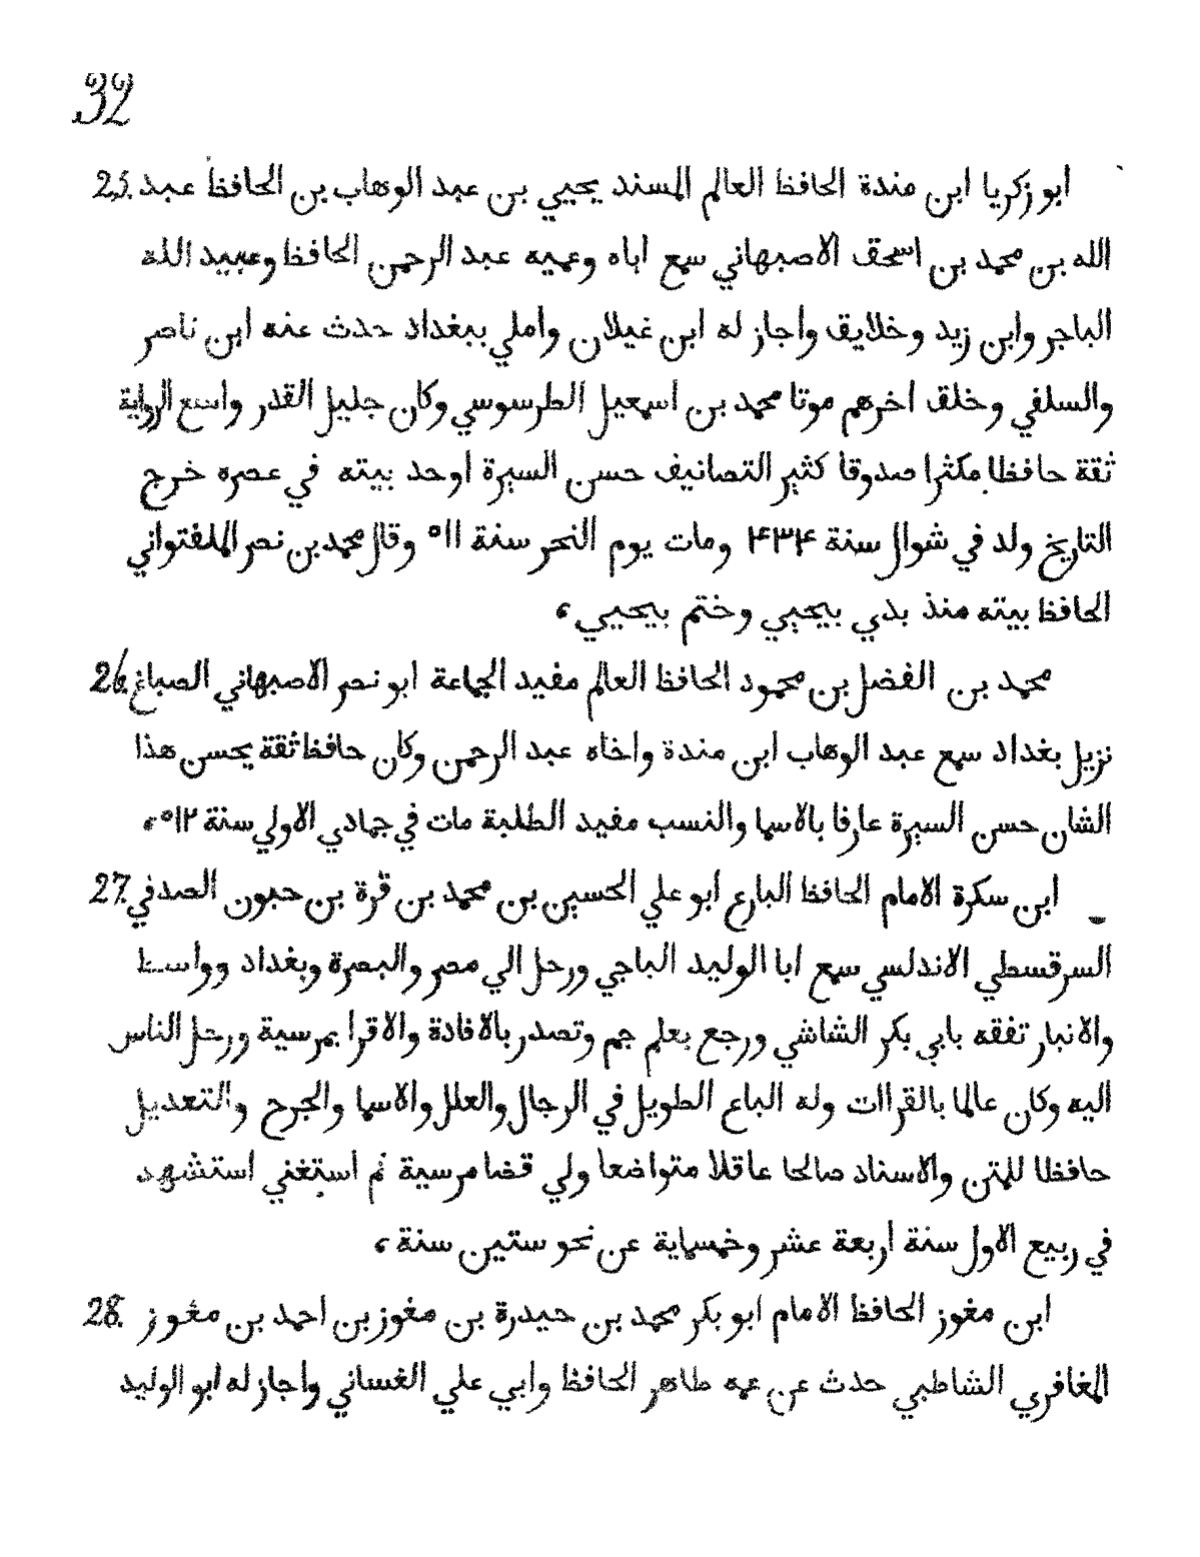 32
25. ابو زكريا ابن مندة الحافظ العالم المسند يحيي بن عبد الوهاب بن الحافظ عبد
الله بن محمد بن اسحق الاصبهاني سمع اباه وعميه عبد الرحمن الحافظ وعبيد الله
الباجر وابن زيد وخلايق واجاز له ابن غيلان واملي ببغداد حدث عنه ابن ناصر
والسلفي وخلق اخرهم موتا محمد بن اسمعيل الطرسوسي وكان جليل القدر واسع الرواية
ثقة حافظا مكثرا صدوقا كثير التصانيف حسن السيرة اوحد بيته في عصره خرج
التاريخ ولد في شوال سنة ۴۳۴ ومات يوم النحر سنة ٥١١ وقال محمد بن نصر الملفتواني
الحافظ بيته منذ بدي بيحيي وختم بيحيي،
26. محمد بن الفضل بن محمود الحافظ العالم مفيد الجماعة ابو نصر الاصبهاني الصباغ
نزيل بغداد سمع عبد الوهاب ابن مندة واخاه عبد الرحمن وكان حافظ ثقة يحسن هذا
الشان حسن السيرة عارفا بالاسما والنسب مفيد الطلبة مات في جمادي الاولي سنة ٥١٢،
27. ابن سكرة الامام الحافظ البارع ابو علي الحسين بن محمد بن قرة بن حبون الصدفي
السرقسطي الاندلسي سمع ابا الوليد الباجي ورحل الي مصر والبصرة وبغداد وواسط
والانبار تفقه بابي بكر الشاشي ورجع بعلم جم وتصدر بالافادة والاقرا بمرسية ورحل الناس
اليه وكان عالما بالقراات وله الباع الطويل في الرجال والعلل والاسما والجرح والتعديل
حافظا للمتن والاسناد صالحا عاقلا متواضعا ولي قضا مرسية ثم استغني استشهد
في ربيع الاول سنة اربعة عشر وخمسماية عن نحو ستين سنة،
28. ابن مغوز الحافظ الامام ابو بكر محمد بن حيدرة بن مغوز بن احمد بن مغوز
المغافري الشاطبي حدث عن عمه طاهر الحافظ وابي علي الغساني واجاز له ابو الوليد